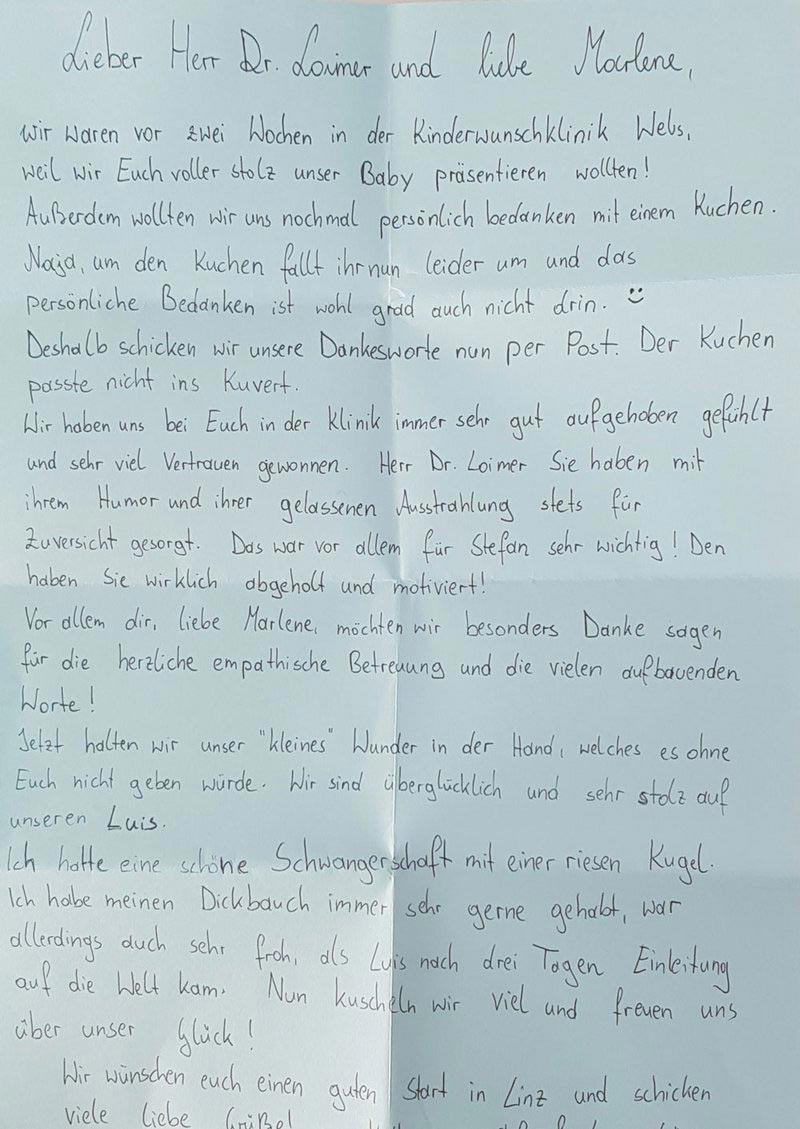 Lieber Herr Dr. Loimer und liebe Marlene,
wir waren vor zwei Wochen in der Kinderwunschklinik Wels,
weil wir Euch voller stolz unser Baby präsentieren wollten!
Außerdem wollten wir uns nochmal persönlich bedanken mit einem Kuchen.
Naja, um den Kuchen fallt ihr nun leider um und das
persönliche Bedanken ist wohl grad auch nicht drin. :)
Deshalb schicken wir unsere Dankesworte nun per Post. Der Kuchen
passte nicht ins Kuvert.
Wir haben uns bei Euch in der Klinik immer sehr gut aufgehoben gefühlt
und sehr viel Vertrauen gewonnen. Herr Dr. Loimer Sie haben mit
ihrem Humor und ihrer gelassenen Ausstrahlung stets für
Zuversicht gesorgt. Das war vor allem für Stefan sehr wichtig! Den
haben Sie wirklich abgeholt und motiviert!
Vor allem dir, liebe Marlene, möchten wir besonders Danke sagen
für die herzliche empathische Betreuung und die vielen aufbauenden
Worte!
Jetzt halten wir unser "kleines" Wunder in der Hand, welches es ohne
Euch nicht geben würde. Wir sind überglücklich und sehr stolz auf
unseren Luis.
Ich hatte eine schöne Schwangerschaft mit einer riesen Kugel.
Ich habe meinen Dickbauch immer sehr gerne gehabt, war
allerdings auch sehr froh, als Luis nach drei Tagen Einleitung
auf die Welt kam. Nun kuscheln wir viel und freuen uns
über unser Glück!
Wir wünschen euch einen guten Start in Linz und schicken
viele liebe Grüße!